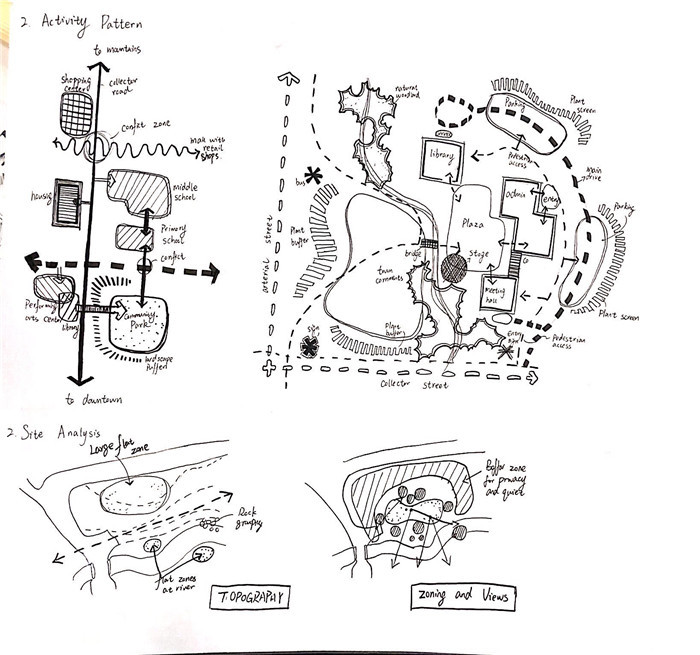 2. Activity Pattern
to mantains
shopping
center
collector
road
conflit zone
mall with
retail
shops.
housing
middle
school
Primary
school
conflict
Performing
arts Center
library
community
Park
landscape
buffered
to downtown
natural
woodland
Parking
Plant
screen
library
Pedestrian
access
main
drive
bus
admin
entry
Parking
Plant
buffer
Plaza
arterial street
bridge
Stage
town
comments
meeting
hall
Plant screen
plant
buffer
Entry
Pedestrian
access
collector street
2. Site Analysis
Large flat
zone
Rock
flat zones
at river
TOPOGRAPHY
Buffer zone
for privacy
and quiet
Zoning and Views